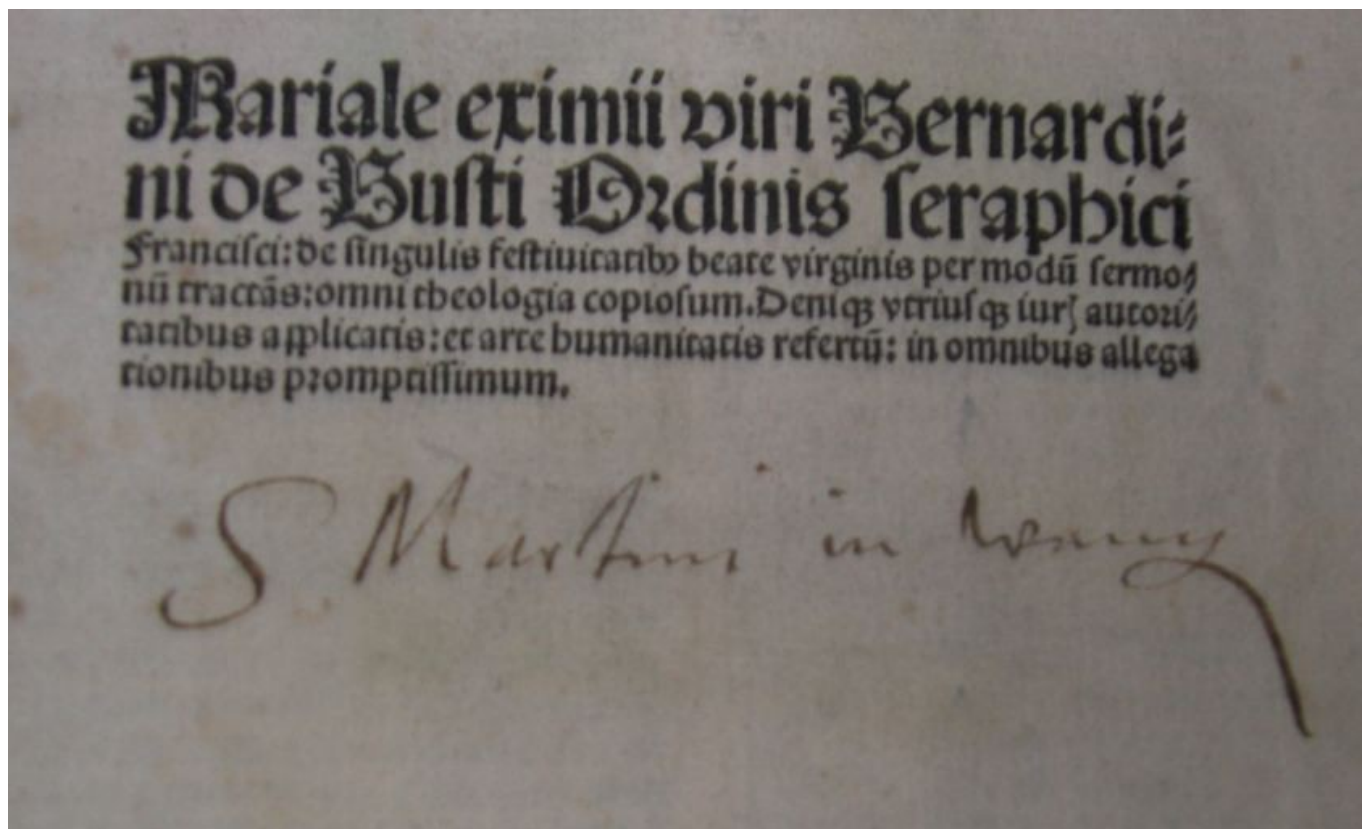 Mariale eximii viri Bernardi⸗
ni de Busti Ordinis seraphici
Francisci: de singulis festiuitatibꝰ beate virginis per modū sermo⸗
nū tractās: omni theologia copiosum. Deniqꝫ vtriusqꝫ iurꝭ autori⸗
tatibus applicatis: et arte humanitatis refertū: in omnibus allega
tionibus promptissimum.
S Martini in